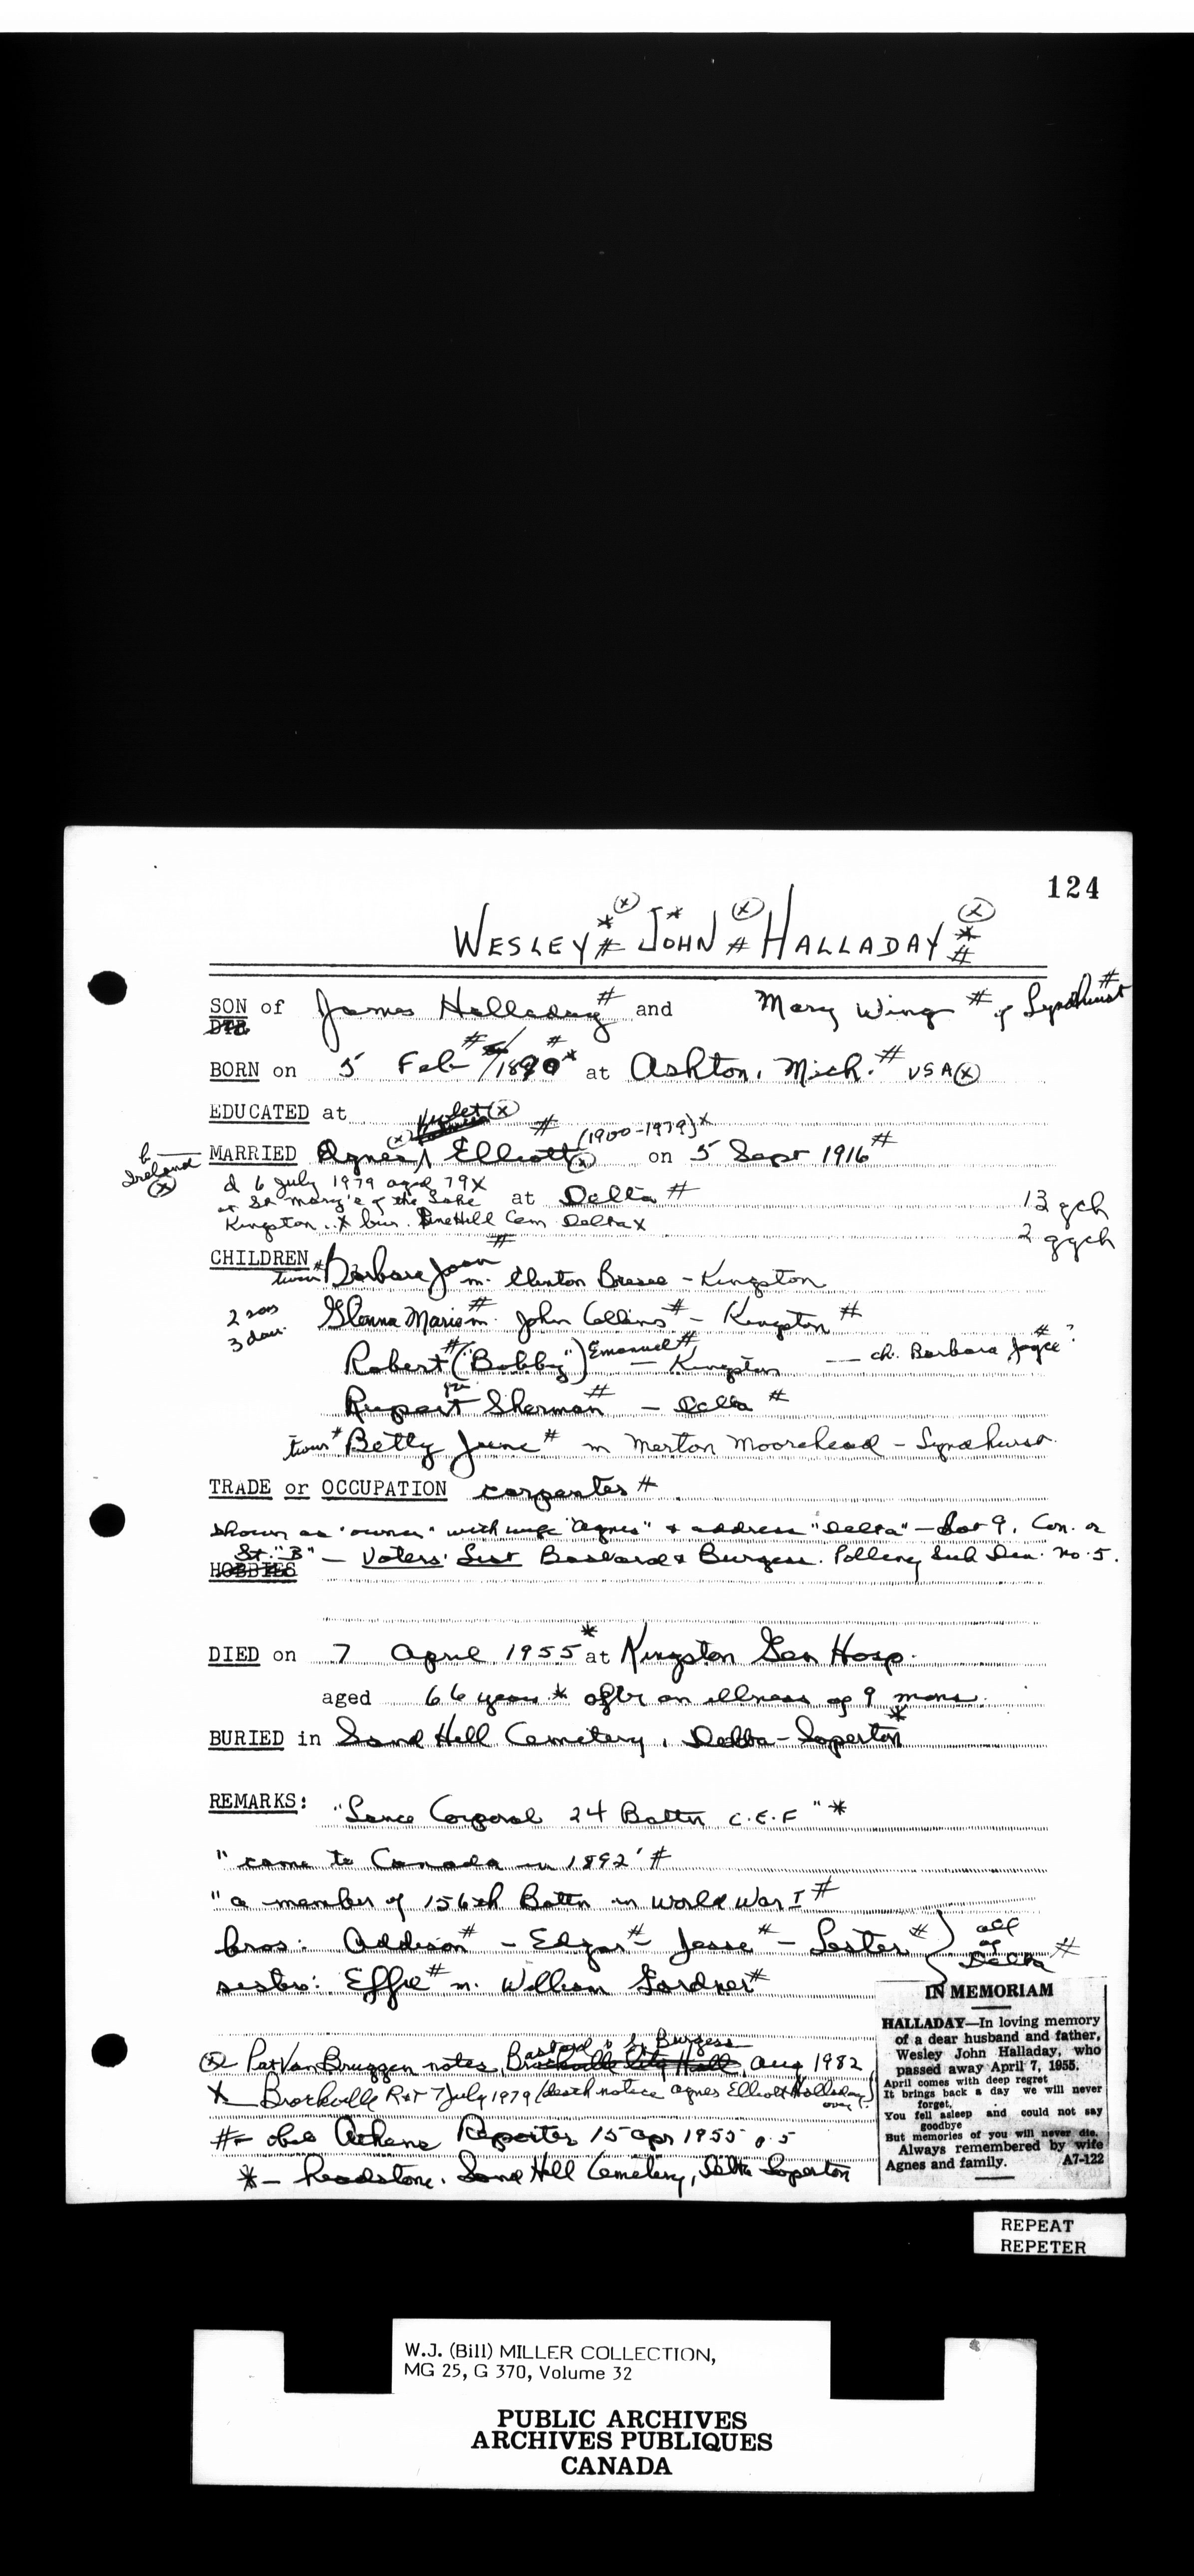 124
WESLEY *# (x) JOHN * # (x) HALLADAY (x) * #
SON of James Halladay # and Mary Wing # of Lyndhurst #
DTR.
BORN on 5 Feb # /1890 #* at Ashton, Mich. # USA (x)
EDUCATED at
Violet (x)
b. Ireland (x) MARRIED Agnes (x) Elliott # (x) (1900-1979) x on 5 Sept 1916 #
d 6 July 1979 aged 79 x
at St Mary's of the Lake at Delta # 13 gch
Kingston x bur. Pine Hill Cem Delta x 2 ggch
CHILDREN twin * Barbara Joan # m. Clinton Bresee - Kingston
2 sons Glenna Marie # m. John Collins # - Kingston #
3 dau.
Robert # ("Bobby") Emanuel # - Kingston — ch. Barbara Joyce # ?
Rupert Sherman # - Delta #
twin * Betty June # m Merton Moorehead - Lyndhurst
TRADE or OCCUPATION carpenter #
shown as "owner" with wife "Agnes" & address "Delta" - Lot 9, Con. or
St. "B" - Voters' List Bastard & Burgess. Polling Sub Div. No. 5.
HOBBIES
DIED on 7 April 1955 * at Kingston Gen Hosp.
aged 66 years * after an illness of 9 mons.
BURIED in Sand Hill Cemetery, Delta - Soperton *
REMARKS: "Lance Corporal 24 Battn C.E.F" *
"came to Canada in 1892" #
"a member of 156th Battn in World War I #
bros: Addison # - Edgar # - Jesse # - Lester # } all of Delta #
sisters: Effie # m. William Gardner #
(x) Pat Van Bruggen notes, Bastard & S. Burgess Brockville City Hall, Aug 1982
x Brockville R&T 7 July 1979 (death notice Agnes Elliott Halladay)
over
# - obit Athens Reporter 15 Apr 1955 p. 5
* - headstone. Sand Hill Cemetery, Delta Soperton
IN MEMORIAM
HALLADAY—In loving memory
of a dear husband and father,
Wesley John Halladay, who
passed away April 7, 1955.
April comes with deep regret
It brings back a day we will never
forget,
You fell asleep and could not say
goodbye
But memories of you will never die.
Always remembered by wife
Agnes and family. A7-122
REPEAT
REPETER
W.J. (Bill) MILLER COLLECTION,
MG 25, G 370, Volume 32
PUBLIC ARCHIVES
ARCHIVES PUBLIQUES
CANADA